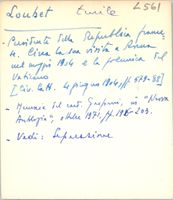 Loubet Emile L561
- Presidente della Repubblica france-
se. Circa la sua visita a Roma
nel maggio 1904 e la polemica del
Vaticano
[Civ. Catt. 4 giugno 1904, ff. 579-88]
- Memorie del card. Gasparri, in "Nuova
Antologia", ottobre 1971, ff. 203.
- Vedi: